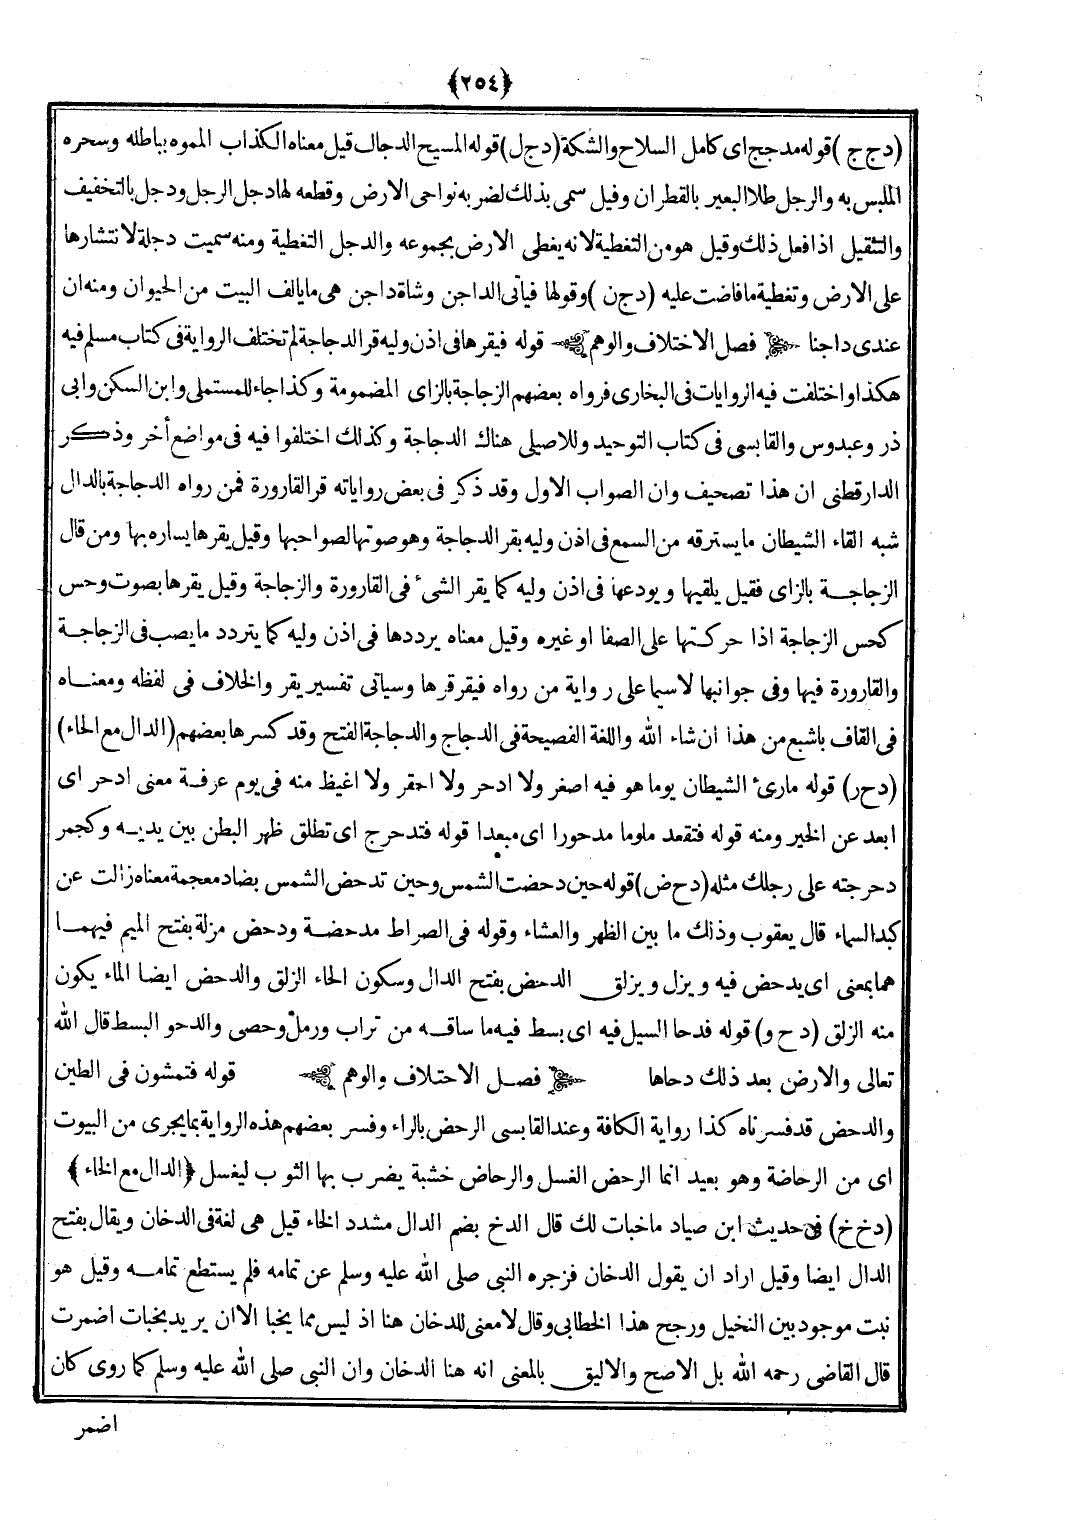 ﴿٢٥٤﴾
(دجج) قوله مدجج اى كامل السلاح والشكة (دجل) قوله المسيح الدجال قيل معناه الكذاب المموه بباطله وسحره
الملبس به والرجل طلا البعير بالقطران وفيل سمى بذلك لضربه نواحى الارض وقطعه لها دجل الرجل ودجل بالتخفيف
والتثقيل اذا فعل ذلك وقيل هو من التغطية لانه يغطى الارض بجموعه والدجل التغطية ومنه سميت دجلة لانتشارها
على الارض وتغطية ما فاضت عليه (دجن) وقولها فيأتى الداجن وشاة داجن هى ما يالف البيت من الحيوان ومنه ان
عندى داجنا فصل الاختلاف والوهم قوله فيقرها فى اذن وليه قر الدجاجة لم تختلف الرواية فى كتاب مسلم فيه
هكذا واختلفت فيه الروايات فى البخارى فرواه بعضهم الزجاجة بالزاى المضمومة وكذا جاء للمستملى وابن السكن وابى
ذر وعبدوس والقابسى فى كتاب التوحيد وللاصيلى هناك الدجاجة وكذلك اختلفوا فيه فى مواضع أخر وذكر
الدارقطنى ان هذا تصحيف وان الصواب الاول وقد ذكر فى بعض رواياته قر القارورة فمن رواه الدجاجة بالدال
شبه القاء الشيطان ما يسترقه من السمع فى اذن وليه بقر الدجاجة وهو صوتها لصواحبها وقيل يقرها يساره بها ومن قال
الزجاجة بالزاى فقيل يلقيها ويودعها فى اذن وليه كما يقر الشئ فى القارورة والزجاجة وقيل يقرها بصوت وحس
كحس الزجاجة اذا حركتها على الصفا او غيره وقيل معناه يرددها فى اذن وليه كما يتردد ما يصب فى الزجاجة
والقارورة فيها وفى جوانبها لاسيما على رواية من رواه فيقرقرها وسياتى تفسير يقر والخلاف فى لفظه ومعناه
فى القاف باشبع من هذا ان شاء الله واللغة الفصيحة فى الدجاج والدجاجة الفتح وقد كسرها بعضهم (الدال مع الحاء)
(دحر) قوله مارئ الشيطان يوما هو فيه اصغر ولا ادحر ولا احقر ولا اغيظ منه فى يوم عرفة معنى ادحر اى
ابعد عن الخير ومنه قوله فتقعد ملوما مدحورا اى مبعدا قوله فتدحرج اى تطلق ظهر البطن بين يديه وكجمر
دحرجته على رجلك مثله (دحض) قوله حين دحضت الشمس وحين تدحض الشمس بضاد معجمة معناه زالت عن
كبد السماء قال يعقوب وذلك ما بين الظهر والعشاء وقوله فى الصراط مدحضة ودحض مزلة بفتح الميم فيهما
هما بمعنى اى يدحض فيه ويزل ويزلق الدحض بفتح الدال وسكون الحاء الزلق والدحض ايضا الماء يكون
منه الزلق (دحو) قوله فدحا السيل فيه اى بسط فيه ما ساقه من تراب ورمل وحصى والدحو البسط قال الله
تعالى والارض بعد ذلك دحاها فصل الاختلاف والوهم قوله فتمشون فى الطين
والدحض قد فسرناه كذا رواية الكافة وعند القابسى الرحض بالراء وفسر بعضهم هذه الرواية بما يجرى من البيوت
اى من الرحاضة وهو بعيد انما الرحض الغسل والرحاض خشبة يضرب بها الثوب ليغسل ﴿الدال مع الخاء﴾
(دخخ) فى حديث ابن صياد ما خبات لك قال الدخ بضم الدال مشدد الخاء قيل هى لغة فى الدخان ويقال بفتح
الدال ايضا وقيل اراد ان يقول الدخان فزجره النبى صلى الله عليه وسلم عن تمامه فلم يستطع تمامه وقيل هو
نبت موجود بين النخيل ورجح هذا الخطابى وقال لا معنى للدخان هنا اذ ليس مما يخبا الا ان يريد بخبات اضمرت
قال القاضى رحمه الله بل الاصح والاليق بالمعنى انه هنا الدخان وان النبى صلى الله عليه وسلم كما روى كان
اضمر